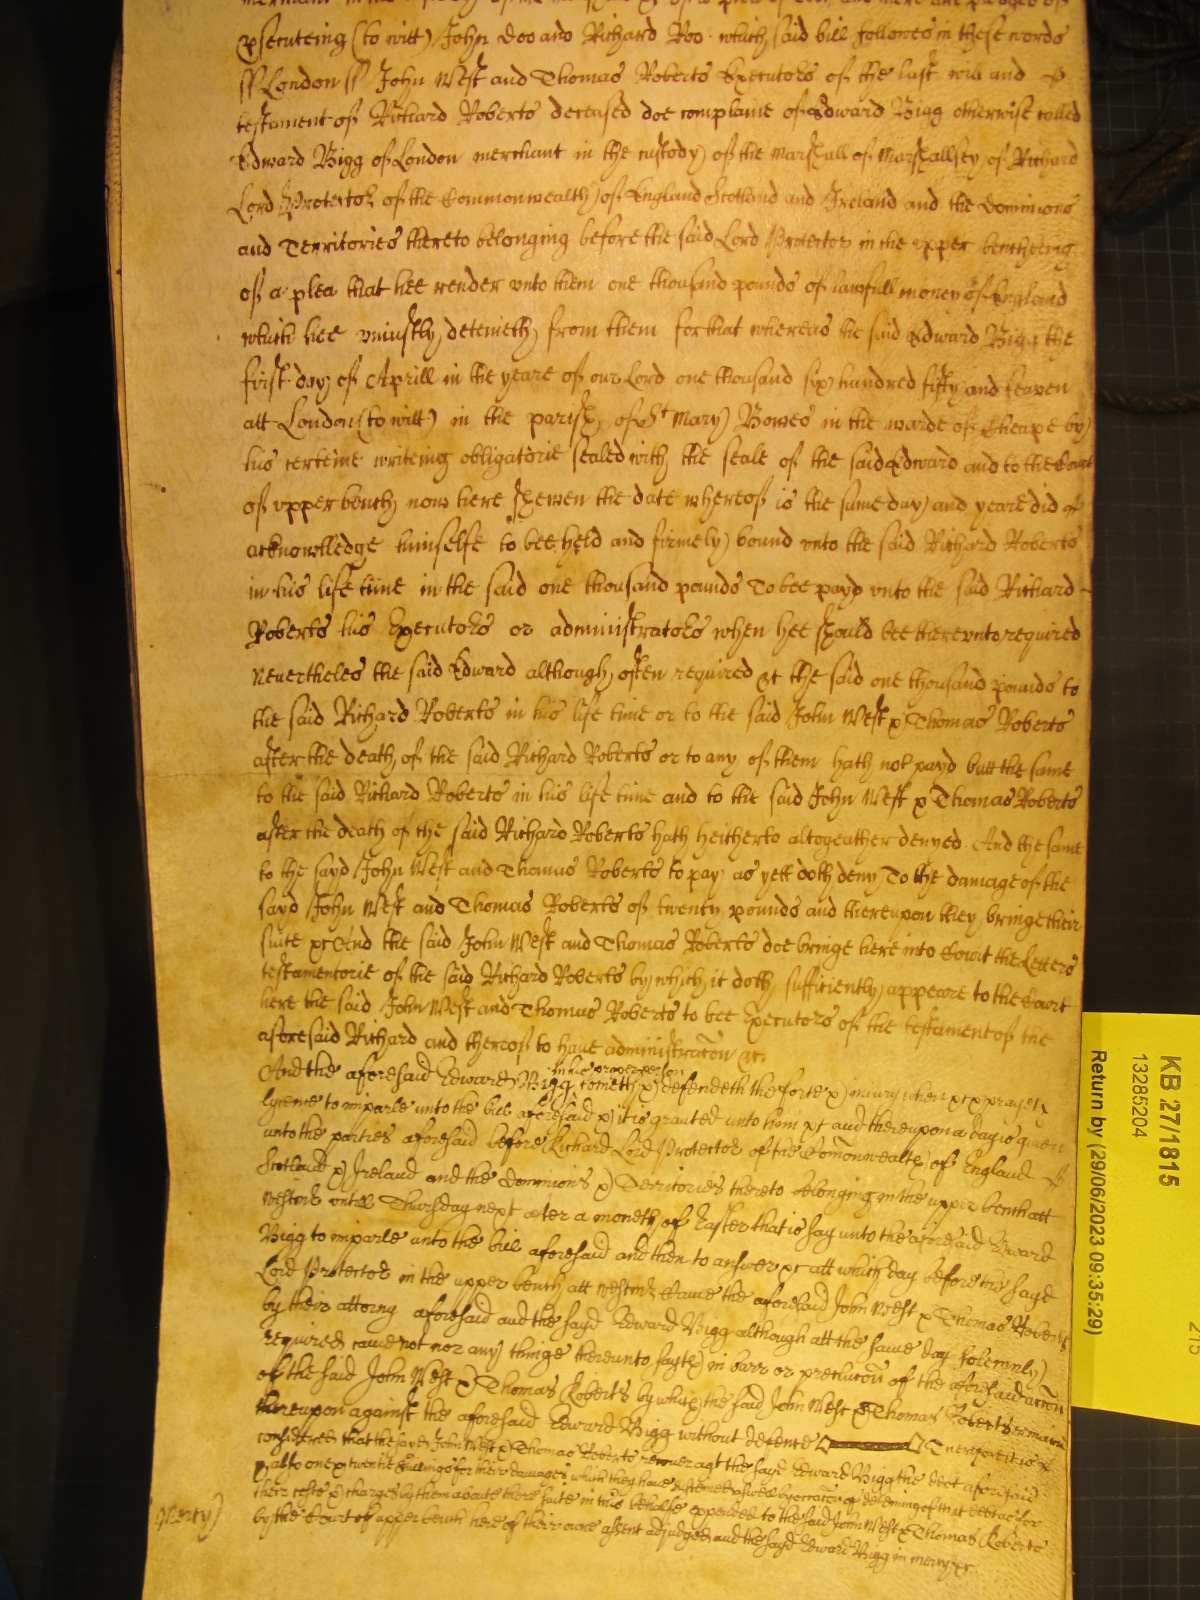 prosecuteing (to witt) John Doo and Richard Roo which said bill followes in these words
ss London ss John West and Thomas Roberts Executors of the last will and
testament of Richard Roberts deceased doe complaine of Edward Bigg otherwise called
Edward Bigg of London merchant in the custody of the Marshall of Marshallsey of Richard
Lord Protector of the Commonwealth of England Scotland and Ireland and the Dominions
and Territories thereto belonging before the said Lord Protector in the upper bench being
of a plea that hee render unto them one thousand pounds of lawfull money of England
which hee uniustly deteineth from them for that whereas the said Edward Bigg the
first day of Aprill in the yeare of our Lord one thousand six hundred fifty and seaven
att London (to witt) in the parish of St Mary Bowes in the warde of Cheape by
his certeine writeing obligatorie sealed with the seale of the said Edward and to the Court
of upper bench now here shewen the date whereof is the same day and yeare did
acknowlledge himselfe to bee held and firmely bound unto the said Richard Roberts
in his life time in the said one thousand pounds To bee payd unto the said Richard
Roberts his Executors or administrators when hee should bee thereunto required
Nevertheles the said Edward although often required &t the said one thousand pounds to
the said Richard Roberts in his life time or to the said John West & Thomas Roberts
after the death of the said Richard Roberts or to any of them hath not payd butt the same
to the said Richard Roberts in his life time and to the said John West & Thomas Roberts
after the death of the said Richard Roberts hath heitherto altogeather denyed. And the same
to the sayd John West and Thomas Roberts to pay as yett doth deny To the damage of the
sayd John West and Thomas Roberts of twenty pounds and thereupon they bringe their
suite &c And the said John West and Thomas Roberts doe bringe here into Court the Letters
testamentorie of the said Richard Roberts by which it doth sufficiently appeare to the Court
here the said John West and Thomas Roberts to bee Executors of the testament of the
aforesaid Richard and thereof to have administracon &c.
And the aforesaid Edward Bigg in his proper person cometh & defendeth the force & iniury when &c & prayeth
lycence to imparle unto the bill aforesaid & it is granted unto him &c and thereupon a day is given
unto the parties aforesaid before Richard Lord Protector of the Comonwealth of England
Scotland & Ireland and the Dominions & Territories thereto belonging in the upper bench att
Westmr untill Thursday next after a moneth of Easter that is say unto the aforesaid Edward
Bigg to imparle unto the bill aforesaid and then to answer &c att which day before the sayd
Lord Protector in the upper bench att Westmr Came the aforesaid John West & Thomas Roberts
by their attorny aforesaid and the sayd Edward Bigg although att the same day solemnly
required came not nor any thinge thereunto sayth in barr or preclucon of the aforesaid accon
of the said John West & Thomas Roberts by which the said John West & Thomas Roberts remaine
thereupon against the aforesaid Edward Bigg without defence Therefore it is
considered that the sayd John West & Thomas Roberts recover agt the sayd Edward Bigg the debt aforesaid
& also one & twentie shillings for there damages which they have susteined aswell by occacon of deteining of that debt as for
their costs & charges by them aboute there suite in this behalfe expended to the said John West & Thomas Roberts
by the Court of upper bench here of their owne assent adjudged and the sayd Edward Bigg in mercy &c
Mercy
KB 27/1815
13285204
Return by (29/06/2023 09:35:29)